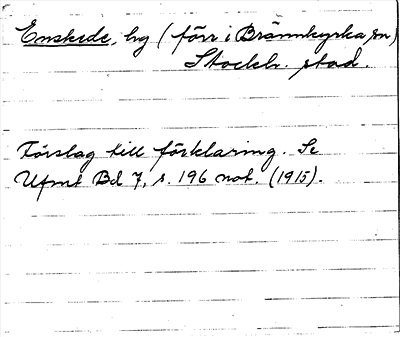 Enskede, hg (förr i Brännkyrka sn)
Stockh. stad.
Förslag till förklaring. Se
Ufmt Bd 7, s. 196 not. (1915).